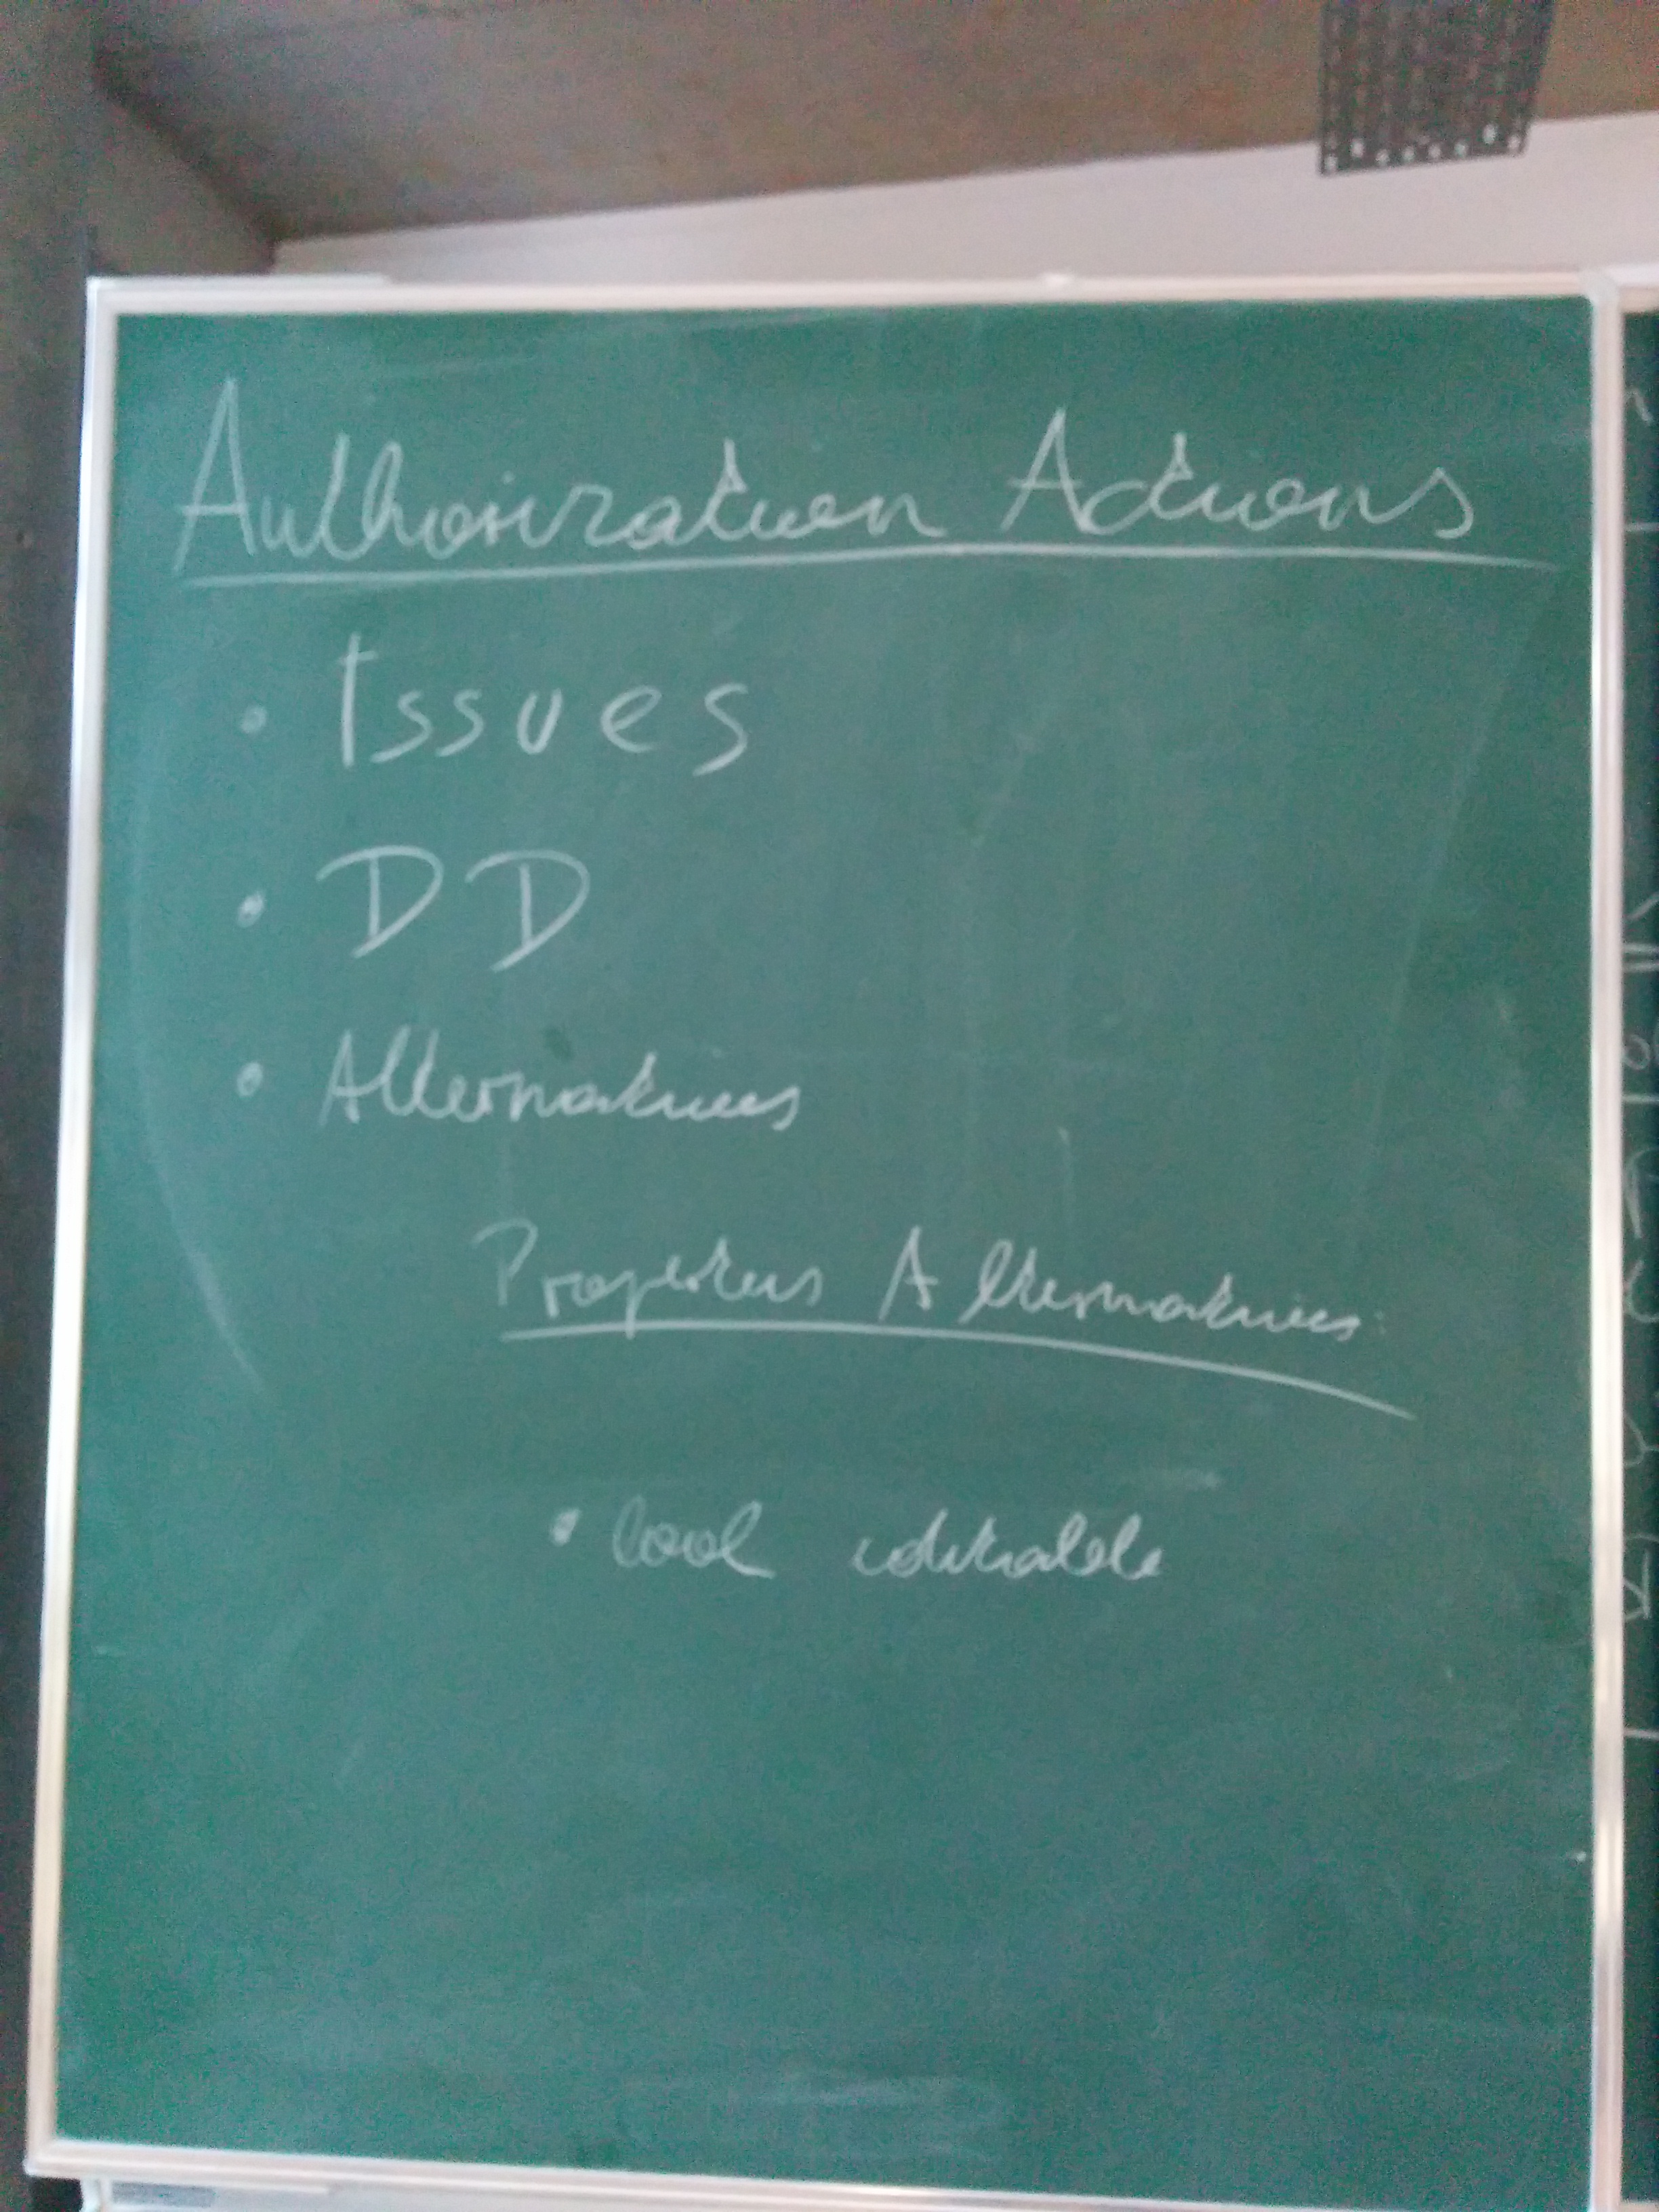 Authorization Actions
• Issues
• DD
• Alternatives
Properties Alternatives:
• bool editable